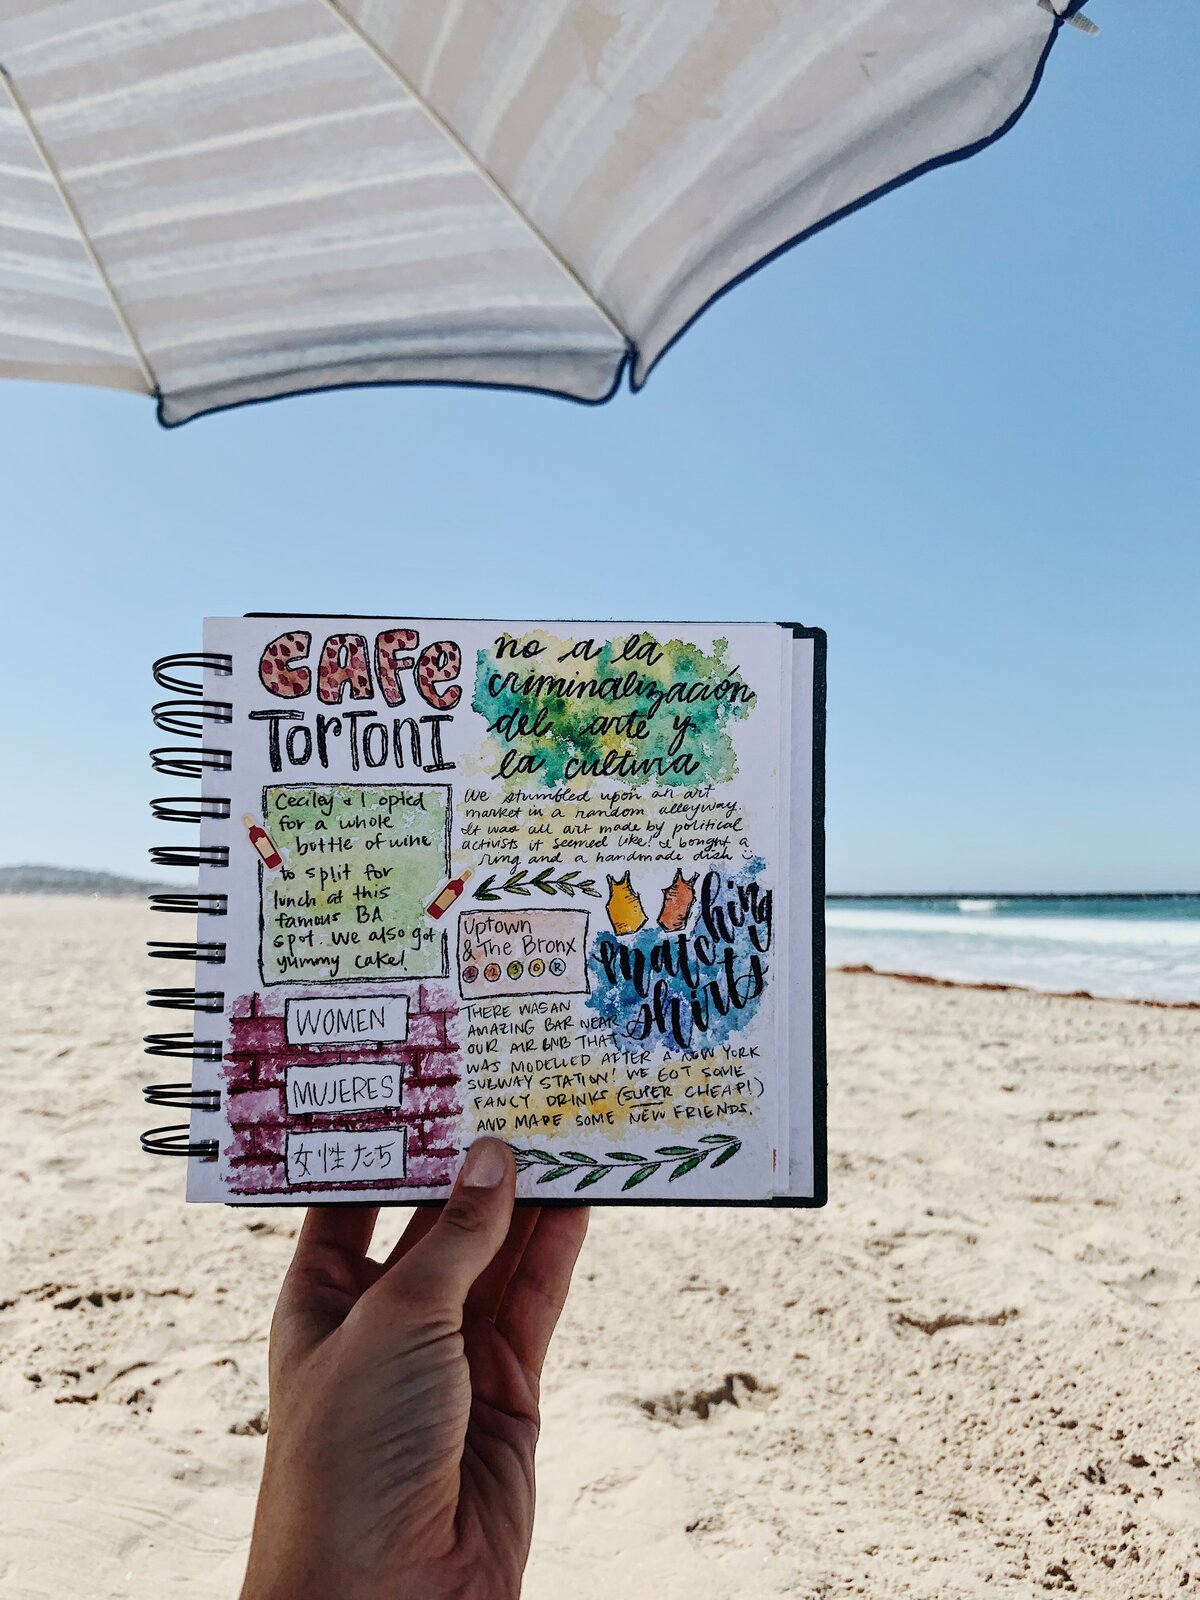 CAFe
TorTonI
Ceciley & I opted
for a whole
bottle of wine
to split for
lunch at this
famous BA
spot. We also got
yummy cake!
WOMEN
MUJERES
女性たち
no a la
criminalización
del arte y
la cultura
We stumbled upon an art
market in a random alleyway.
It was all art made by political
activists it seemed like! I bought a
ring and a handmade dish
matching
shirts
Uptown
& The Bronx
1 2 3 6 R
THERE WAS AN
AMAZING BAR NEAR
OUR AIR BNB THAT
WAS MODELLED AFTER A NEW YORK
SUBWAY STATION! WE GOT SOME
FANCY DRINKS (SUPER CHEAP!)
AND MADE SOME NEW FRIENDS.